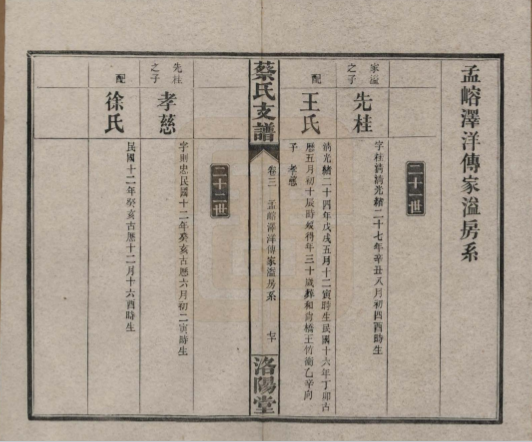 孟嵱澤洋傳家溢房系
二十一世
家溢之子
先桂
字桂清清光緒二十七年辛丑八月初四酉時生
配
王氏
清光緒二十四年戊戌五月十二寅時生民國十六年丁卯古
曆五月初十辰時歿得年三十歲葬和肯橋王竹衝乙辛向
子 孝慈
蔡氏支譜
卷三 孟嵱澤洋傳家溢房系
洛陽堂
二十二世
先桂之子
孝慈
字則忠民國十二年癸亥古曆六月初二寅時生
配
徐氏
民國十二年癸亥古曆十二月十六酉時生